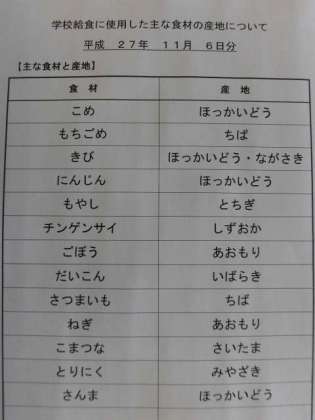 学校給食に使用した主な食材の産地について
平成 27年 11月 6日分
【主な食材と産地】
食 材 産 地
こめ ほっかいどう
もちごめ ちば
きび ほっかいどう・ながさき
にんじん ほっかいどう
もやし とちぎ
チンゲンサイ しずおか
ごぼう あおもり
だいこん いばらき
さつまいも ちば
ねぎ あおもり
こまつな さいたま
とりにく みやざき
さんま ほっかいどう